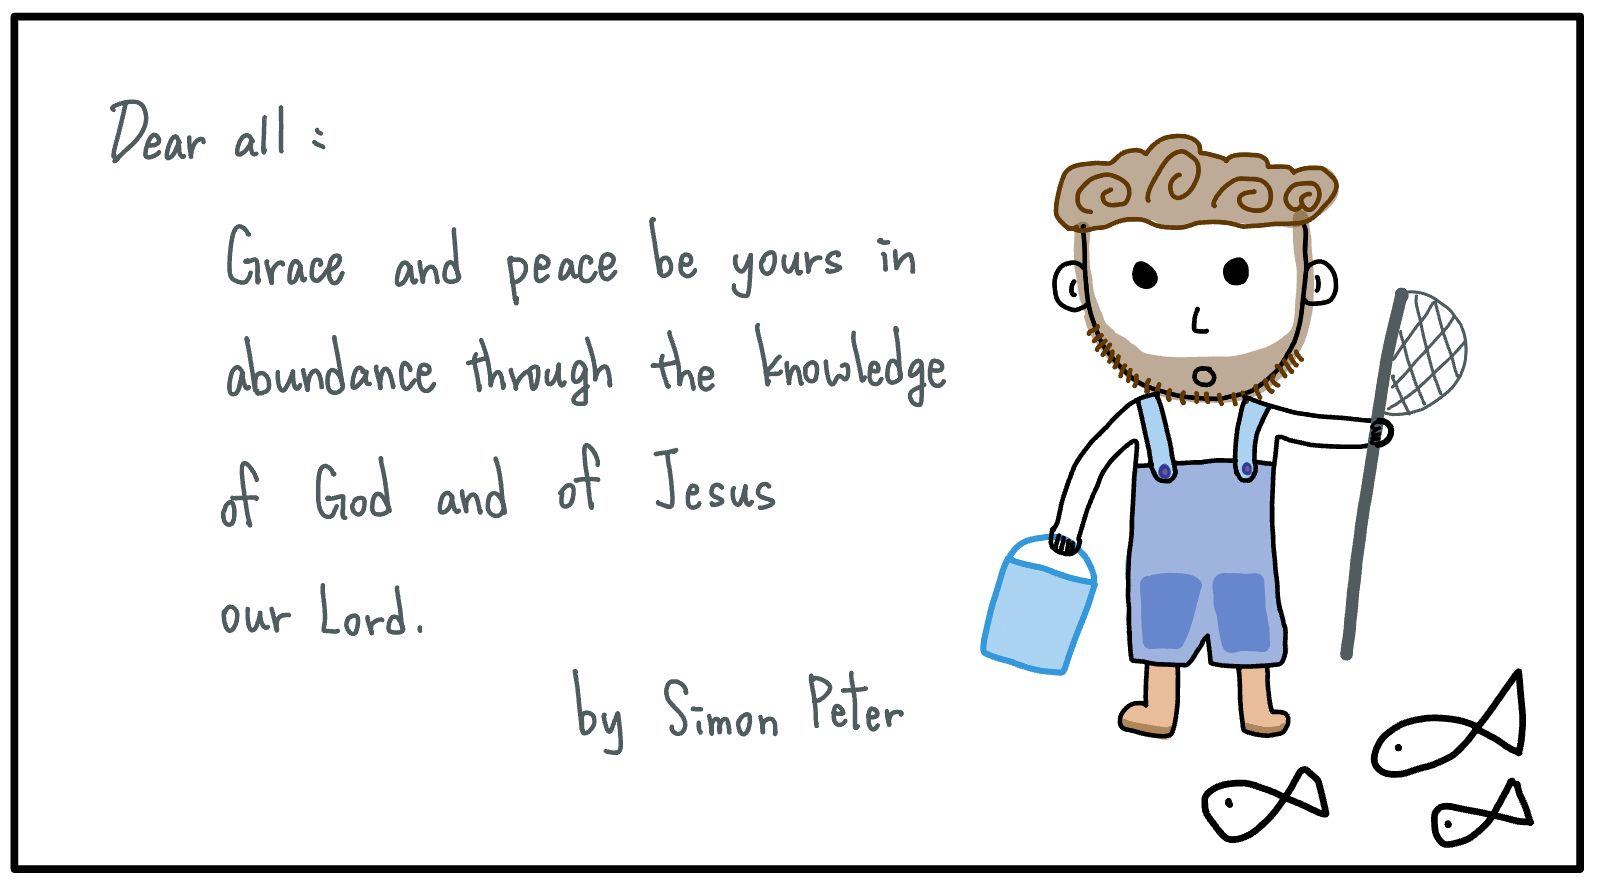 Dear all :
Grace and peace be yours in
abundance through the knowledge
of God and of Jesus
our Lord.
by Simon Peter